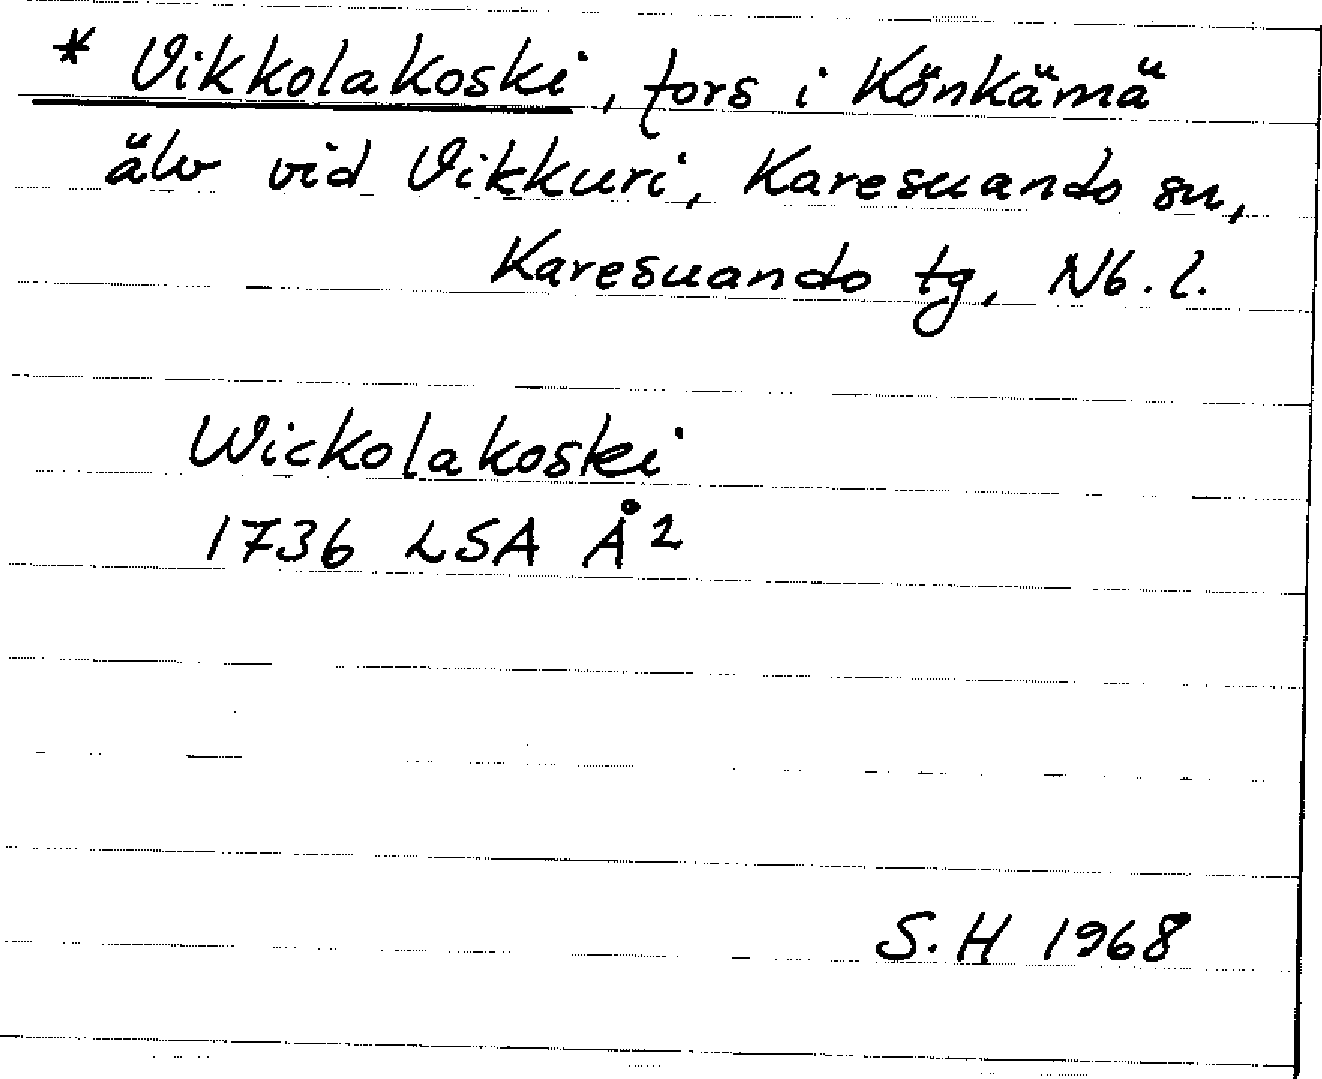 * Vikkolakoski, fors i Könkämä
älv vid Vikkuri, Karesuando sn,
Karesuando tg, Nb. l.
Wickolakoski
1736 LSA Å2
S.H 1968